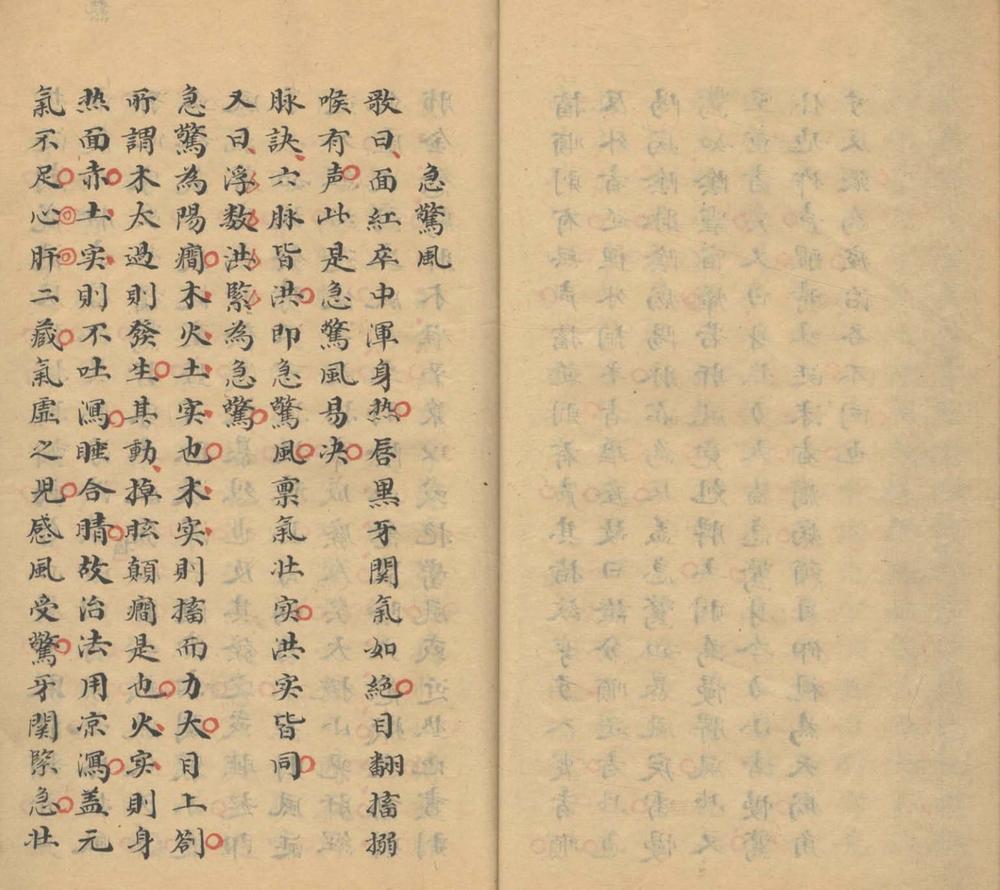 急驚風
歌曰面紅卒中渾身热唇黒牙関氣如絶目翻搐搦
喉有声此是急驚風易决
脉訣六脉皆洪即急驚風禀氣壮实洪实皆同
又曰浮数洪緊為急驚
急驚為陽癎木火土实也木实則搐而力大目上劄
所謂木太過則發生其動掉眩顛癎是也火实則身
热面赤土实則不吐瀉睡合睛故治法用凉瀉盖元
氣不足心肝二蔵氣虛之児感風受驚牙関緊急壮